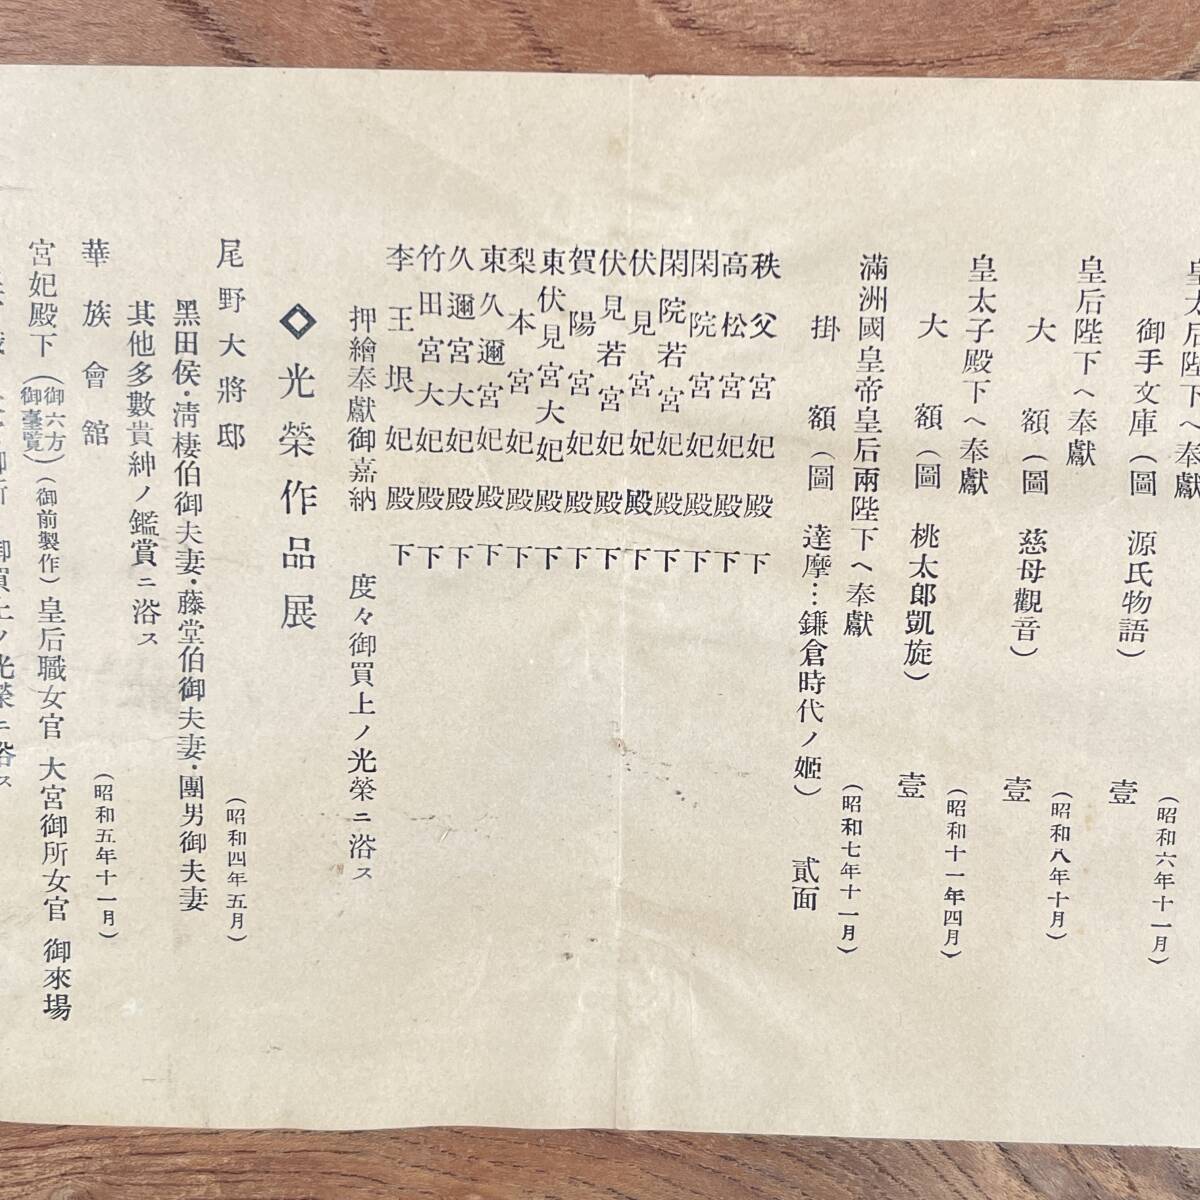 皇太后陛下ヘ奉獻
(昭和六年十一月)
御手文庫(圖 源氏物語) 壹
皇后陛下ヘ奉獻
(昭和八年十月)
大額(圖 慈母觀音) 壹
皇太子殿下ヘ奉獻
(昭和十一年四月)
大額(圖 桃太郎凱旋) 壹
滿洲國皇帝皇后兩陛下ヘ奉獻
(昭和七年十一月)
掛額(圖 達摩…鎌倉時代ノ姬) 貳面
秩父宮妃殿下
高松宮妃殿下
閑院宮妃殿下
閑院若宮妃殿下
伏見宮妃殿下
伏見若宮妃殿下
賀陽宮妃殿下
東伏見宮大妃殿下
梨本宮妃殿下
東久邇宮妃殿下
久邇宮大妃殿下
竹田宮大妃殿下
李王垠妃殿下
押繪奉獻御嘉納 度々御買上ノ光榮ニ浴ス
◇光榮作品展
尾野大將邸 (昭和四年五月)
黑田侯・淸棲伯御夫妻・藤堂伯御夫妻・團男御夫妻
其他多數貴紳ノ鑑賞ニ浴ス
華族會館 (昭和五年十一月)
宮妃殿下(御六方御臺覽)(御前製作)皇后職女官 大宮御所女官 御來場
御買上ノ光榮ニ浴ス